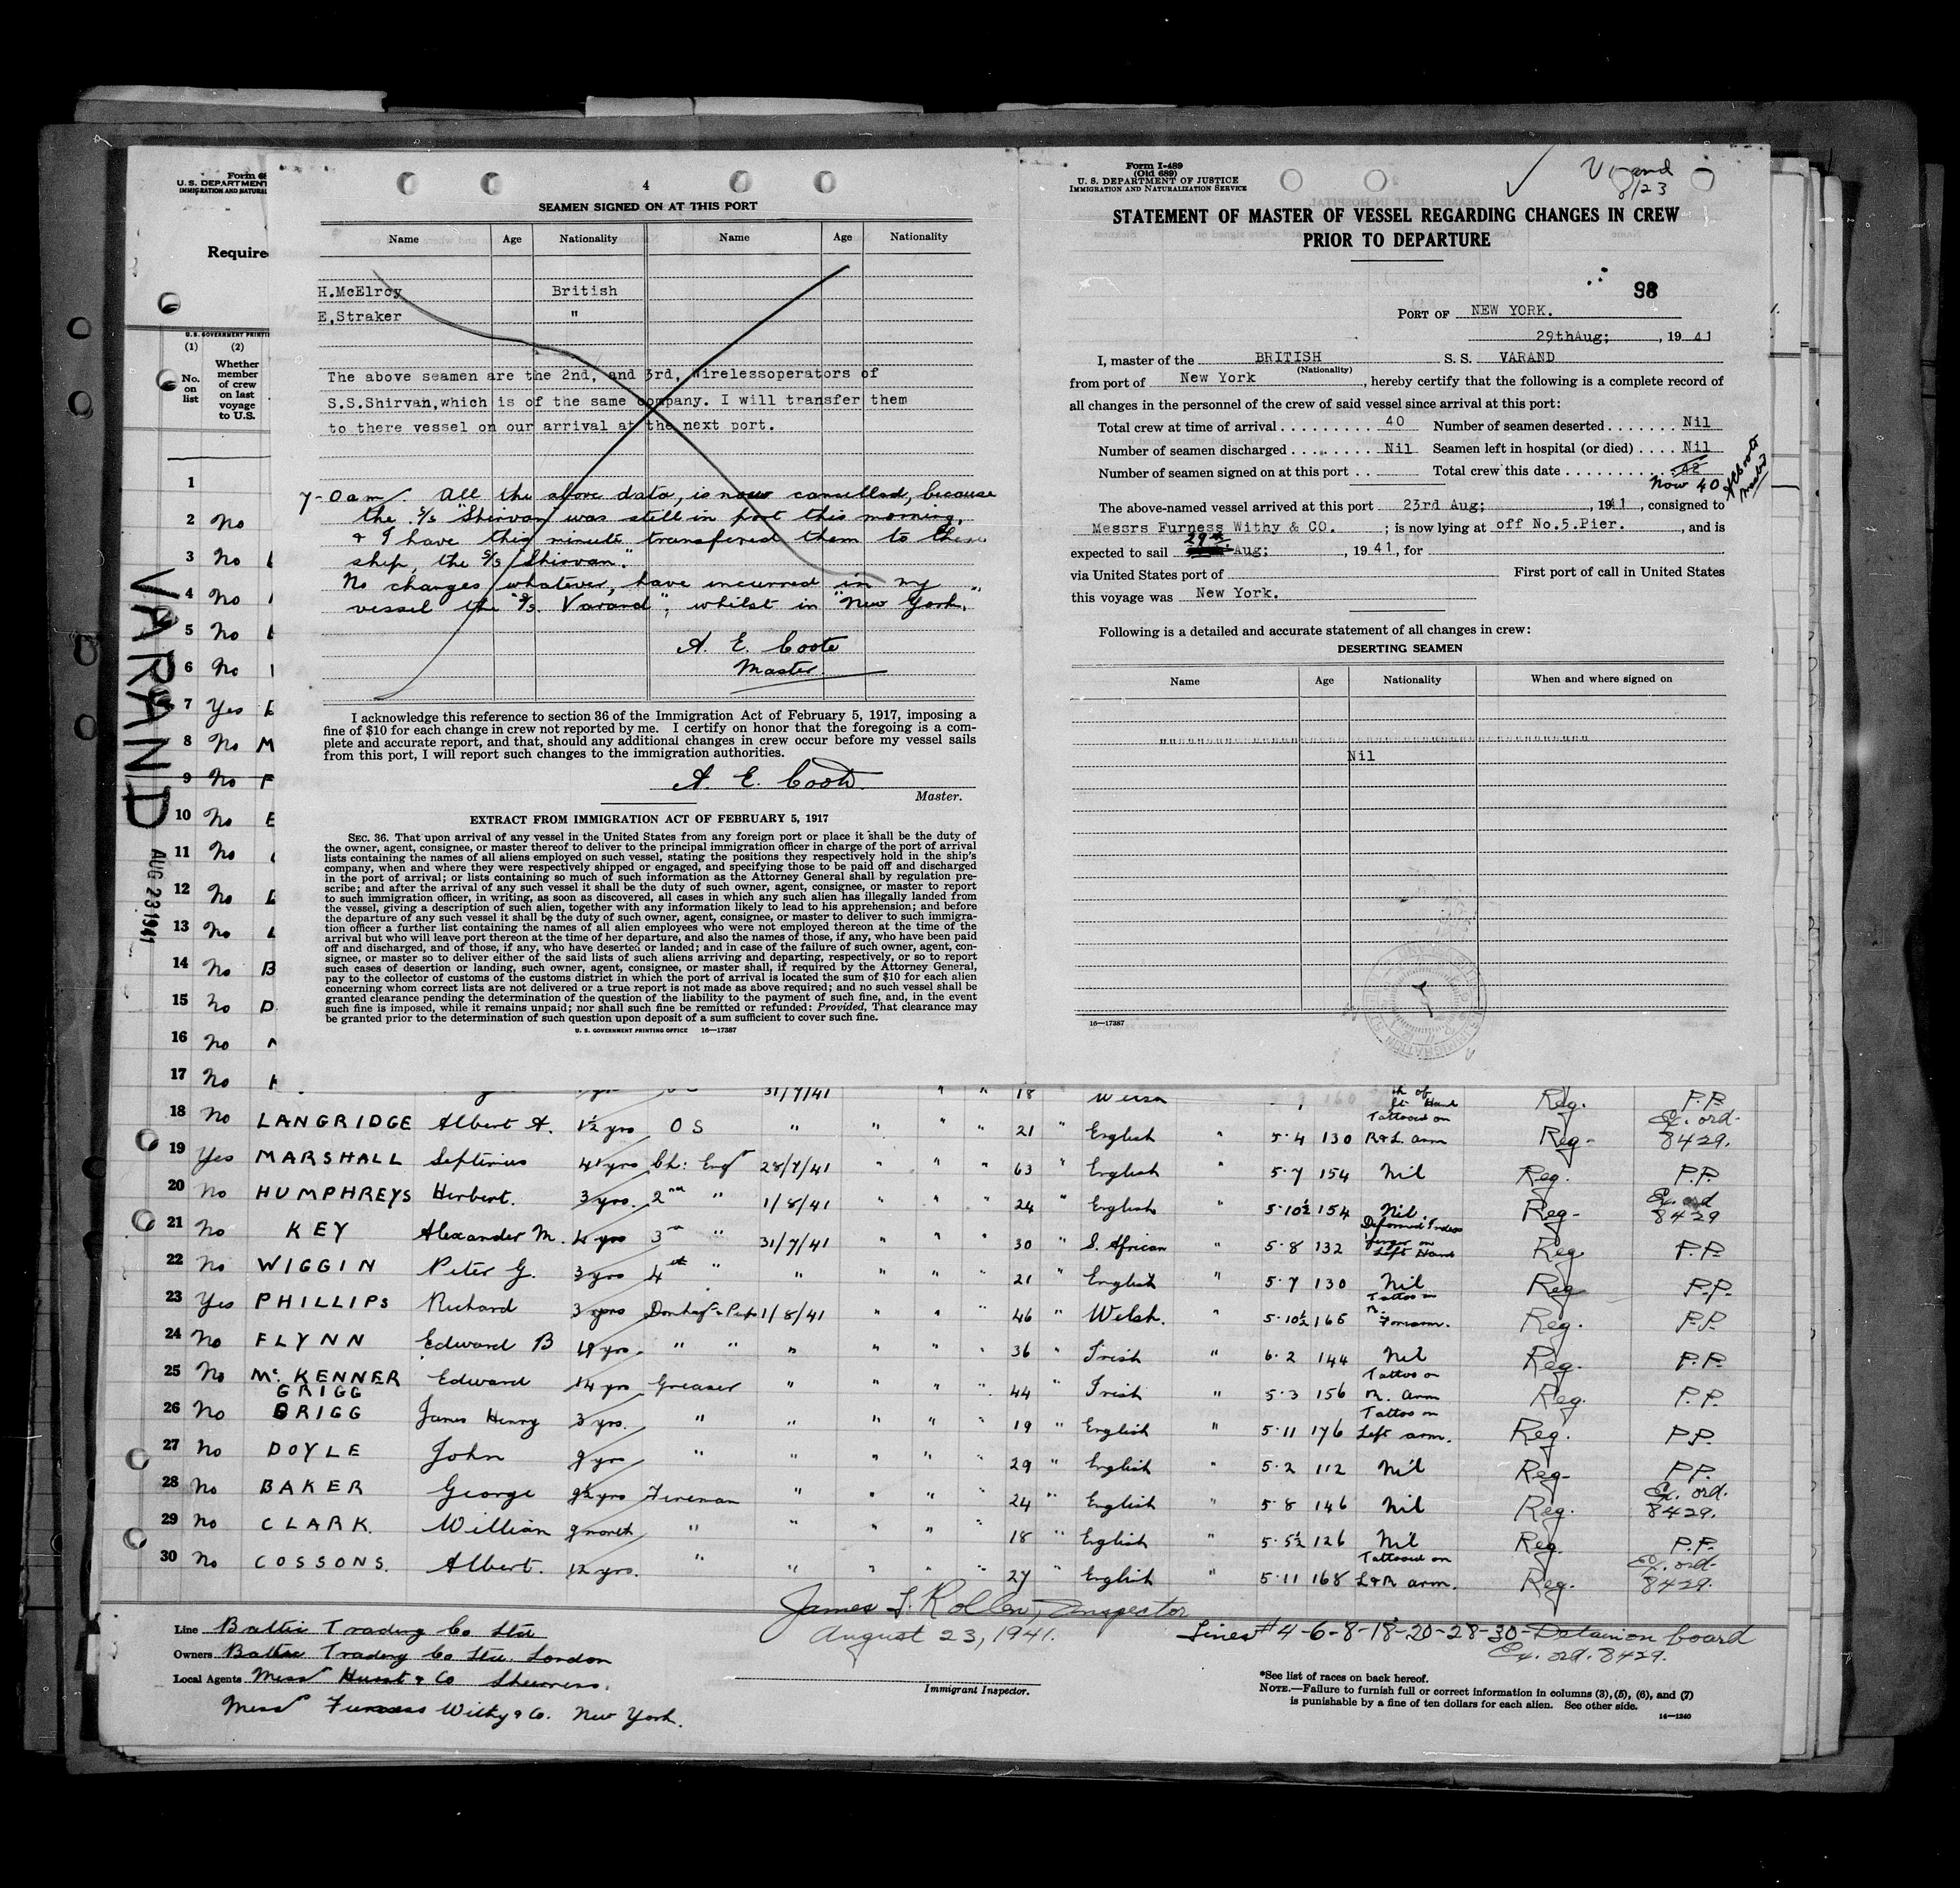 Form 68
U. S. DEPARTMENT
IMMIGRATION AND NATURAL
Require
U. S. GOVERNMENT PRINTI
(1) (2)
No. on list
Whether member of crew on last voyage to U.S.
VARAND
AUG 23 1941
1
2 No
3 No
4 No
5 No
6 No
7 Yes
8 No M
9 No F
10 No E
11 No
12 No
13 No
14 No B
15 No D
16 No
17 No
4
SEAMEN SIGNED ON AT THIS PORT
Name Age Nationality Name Age Nationality
H.McElroy British
E.Straker "
The above seamen are the 2nd, and 3rd, Wirelessoperators of
S.S.Shirvan,which is of the same company. I will transfer them
to there vessel on our arrival at the next port.
7-0 am. All the above data, is now cancelled, because
the S/S "Shirvan" was still in port this morning,
& I have this minute transfered them to there
ship, the S/S "Shirvan".
No changes whatever, have incurred in my
vessel the "S/S. Varand", whilst in "New York."
A. E. Coote
Master.
I acknowledge this reference to section 36 of the Immigration Act of February 5, 1917, imposing a
fine of $10 for each change in crew not reported by me. I certify on honor that the foregoing is a com-
plete and accurate report, and that, should any additional changes in crew occur before my vessel sails
from this port, I will report such changes to the immigration authorities.
A. E. Coote.
Master.
EXTRACT FROM IMMIGRATION ACT OF FEBRUARY 5, 1917
SEC. 36. That upon arrival of any vessel in the United States from any foreign port or place it shall be the duty of
the owner, agent, consignee, or master thereof to deliver to the principal immigration officer in charge of the port of arrival
lists containing the names of all aliens employed on such vessel, stating the positions they respectively hold in the ship's
company, when and where they were respectively shipped or engaged, and specifying those to be paid off and discharged
in the port of arrival; or lists containing so much of such information as the Attorney General shall by regulation pre-
scribe; and after the arrival of any such vessel it shall be the duty of such owner, agent, consignee, or master to report
to such immigration officer, in writing, as soon as discovered, all cases in which any such alien has illegally landed from
the vessel, giving a description of such alien, together with any information likely to lead to his apprehension; and before
the departure of any such vessel it shall be the duty of such owner, agent, consignee, or master to deliver to such immigra-
tion officer a further list containing the names of all alien employees who were not employed thereon at the time of the
arrival but who will leave port thereon at the time of her departure, and also the names of those, if any, who have been paid
off and discharged, and of those, if any, who have deserted or landed; and in case of the failure of such owner, agent, con-
signee, or master so to deliver either of the said lists of such aliens arriving and departing, respectively, or so to report
such cases of desertion or landing, such owner, agent, consignee, or master shall, if required by the Attorney General,
pay to the collector of customs of the customs district in which the port of arrival is located the sum of $10 for each alien
concerning whom correct lists are not delivered or a true report is not made as above required; and no such vessel shall be
granted clearance pending the determination of the question of the liability to the payment of such fine, and, in the event
such fine is imposed, while it remains unpaid; nor shall such fine be remitted or refunded: Provided, That clearance may
be granted prior to the determination of such question upon deposit of a sum sufficient to cover such fine.
U. S. GOVERNMENT PRINTING OFFICE 16—17387
Form I-489
(Old 689)
U. S. DEPARTMENT OF JUSTICE
IMMIGRATION AND NATURALIZATION SERVICE
Varand
8/23
STATEMENT OF MASTER OF VESSEL REGARDING CHANGES IN CREW
PRIOR TO DEPARTURE
98
PORT OF NEW YORK.
29thAug; , 19 41
I, master of the BRITISH S. S. VARAND
(Nationality)
from port of New York , hereby certify that the following is a complete record of
all changes in the personnel of the crew of said vessel since arrival at this port:
Total crew at time of arrival . . . . . . . . . . 40 Number of seamen deserted . . . . . . . Nil
Number of seamen discharged . . . . . . . Nil Seamen left in hospital (or died) . . . . Nil
Number of seamen signed on at this port . . Total crew this date . . . . . . . . . 42
Now 40
A E Coote
Master
The above-named vessel arrived at this port 23rd Aug; , 1941 , consigned to
Messrs Furness Withy & CO. ; is now lying at off No.5.Pier. , and is
expected to sail 29th Aug; , 19 41 , for
via United States port of First port of call in United States
this voyage was New York.
Following is a detailed and accurate statement of all changes in crew:
DESERTING SEAMEN
Name Age Nationality When and where signed on
Nil
16—17387
31/7/41 " " 18 Reg. P.P.
18 No LANGRIDGE Albert A. 1½ yrs O S " " " 21 " English " 5·4 130 Tattooed on R&L. arm Reg- Ex. ord. 8429.
19 Yes MARSHALL Septimus 41 yrs Ch: Eng 28/7/41 " " " 63 " English 5·7 154 Nil Reg. P.P.
20 No HUMPHREYS Herbert. 3 yrs. 2nd " 1/8/41 " " " 24 " English 5·10½ 154 Nil. Reg- Ex. ord 8429
21 No KEY Alexander M. 4 yrs 3rd " 31/7/41 " " " 30 " S. African " 5·8 132 Deformed Index finger on Left Hand Reg. P.P.
22 No WIGGIN Peter G. 3 yrs 4th " " " " " 21 " English " 5·7 130 Nil Reg P.P.
23 Yes PHILLIPS Richard 3 yrs 1/8/41 " " " 46 " Welsh. 5·10½ 165 Tattoo on R. Forearm. Reg. P.P.
24 No FLYNN Edward B 18 yrs. " " " " " " 36 " Irish " 6·2 144 Nil Reg. P.P.
25 No Mc KENNER Edward 14 yrs Greaser " " " " 44 " Irish " 5·3 156 Tattoo on R. arm Reg. P.P.
26 No GRIGG BRIGG James Henry 3 yrs. " " " " " 19 " English " 5·11 176 Tattoo on Left arm. Reg. P.P.
27 No DOYLE John 9 yrs " " " " " 29 " English " 5·2 112 Nil Reg- P.P.
28 No BAKER George 9½ yrs Fireman " " " " 24 " English " 5·8 146 Nil Reg. Ex. ord. 8429.
29 No CLARK. William 9 month " " " " " 18 " English " 5·5½ 126 Nil Reg. P.P.
30 No COSSONS. Albert. 12 yrs. " " " " " 27 " English " 5·11 168 Tattooed on L&R arm. Reg. Ex. ord. 8429.
Line Baltic Trading Co Ltd
Owners Baltic Trading Co Ltd. London
Local Agents Messrs Hurst & Co
Messrs Furness Withy & Co. New York.
James J. Rollen, Inspector
August 23, 1941.
Immigrant Inspector.
Lines # 4-6-8-18-20-28-30- Detainion board
Ex. ord. 8429.
*See list of races on back hereof.
NOTE.—Failure to furnish full or correct information in columns (3), (5), (6), and (7)
is punishable by a fine of ten dollars for each alien. See other side.
14—1240